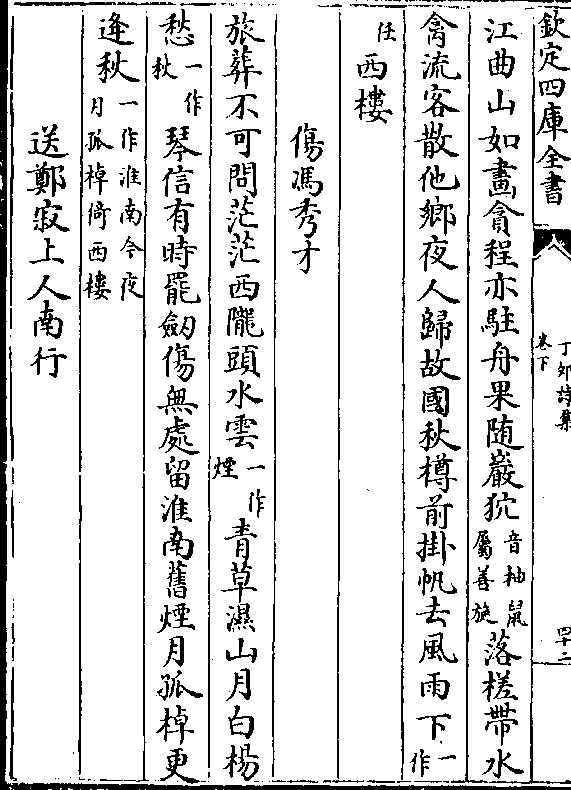 欽定四庫全書
丁卯詩集
卷下
四十二
江曲山如畫貪程亦駐舟果随巖狖音柚鼠屬善旋落槎帶水
禽流客散他鄉夜人歸故國秋樽前掛帆去風雨下一作
任西樓
傷馮秀才
旅葬不可問茫茫西隴頭水雲一作煙青草濕山月白楊
愁一作秋琴信有時罷劒傷無處留淮南舊煙月孤棹更
逢秋一作淮南今夜月孤棹倚西樓
送鄭寂上人南行